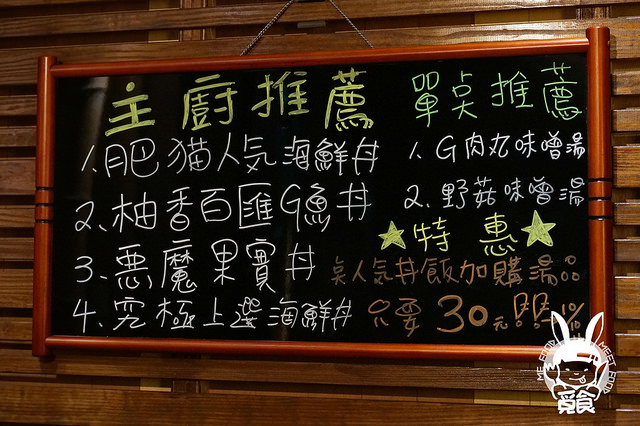 主廚推薦
1.肥猫人気海鮮丼
2.柚香百匯G魚丼
3.悪魔果實丼
4.究極上選海鮮丼
單点推薦
1.G肉丸味噌湯
2.野菇味噌湯
★特惠★
点人気丼飯加購湯品
只要30元!!
ME FOOD MEET FOOD
覓食